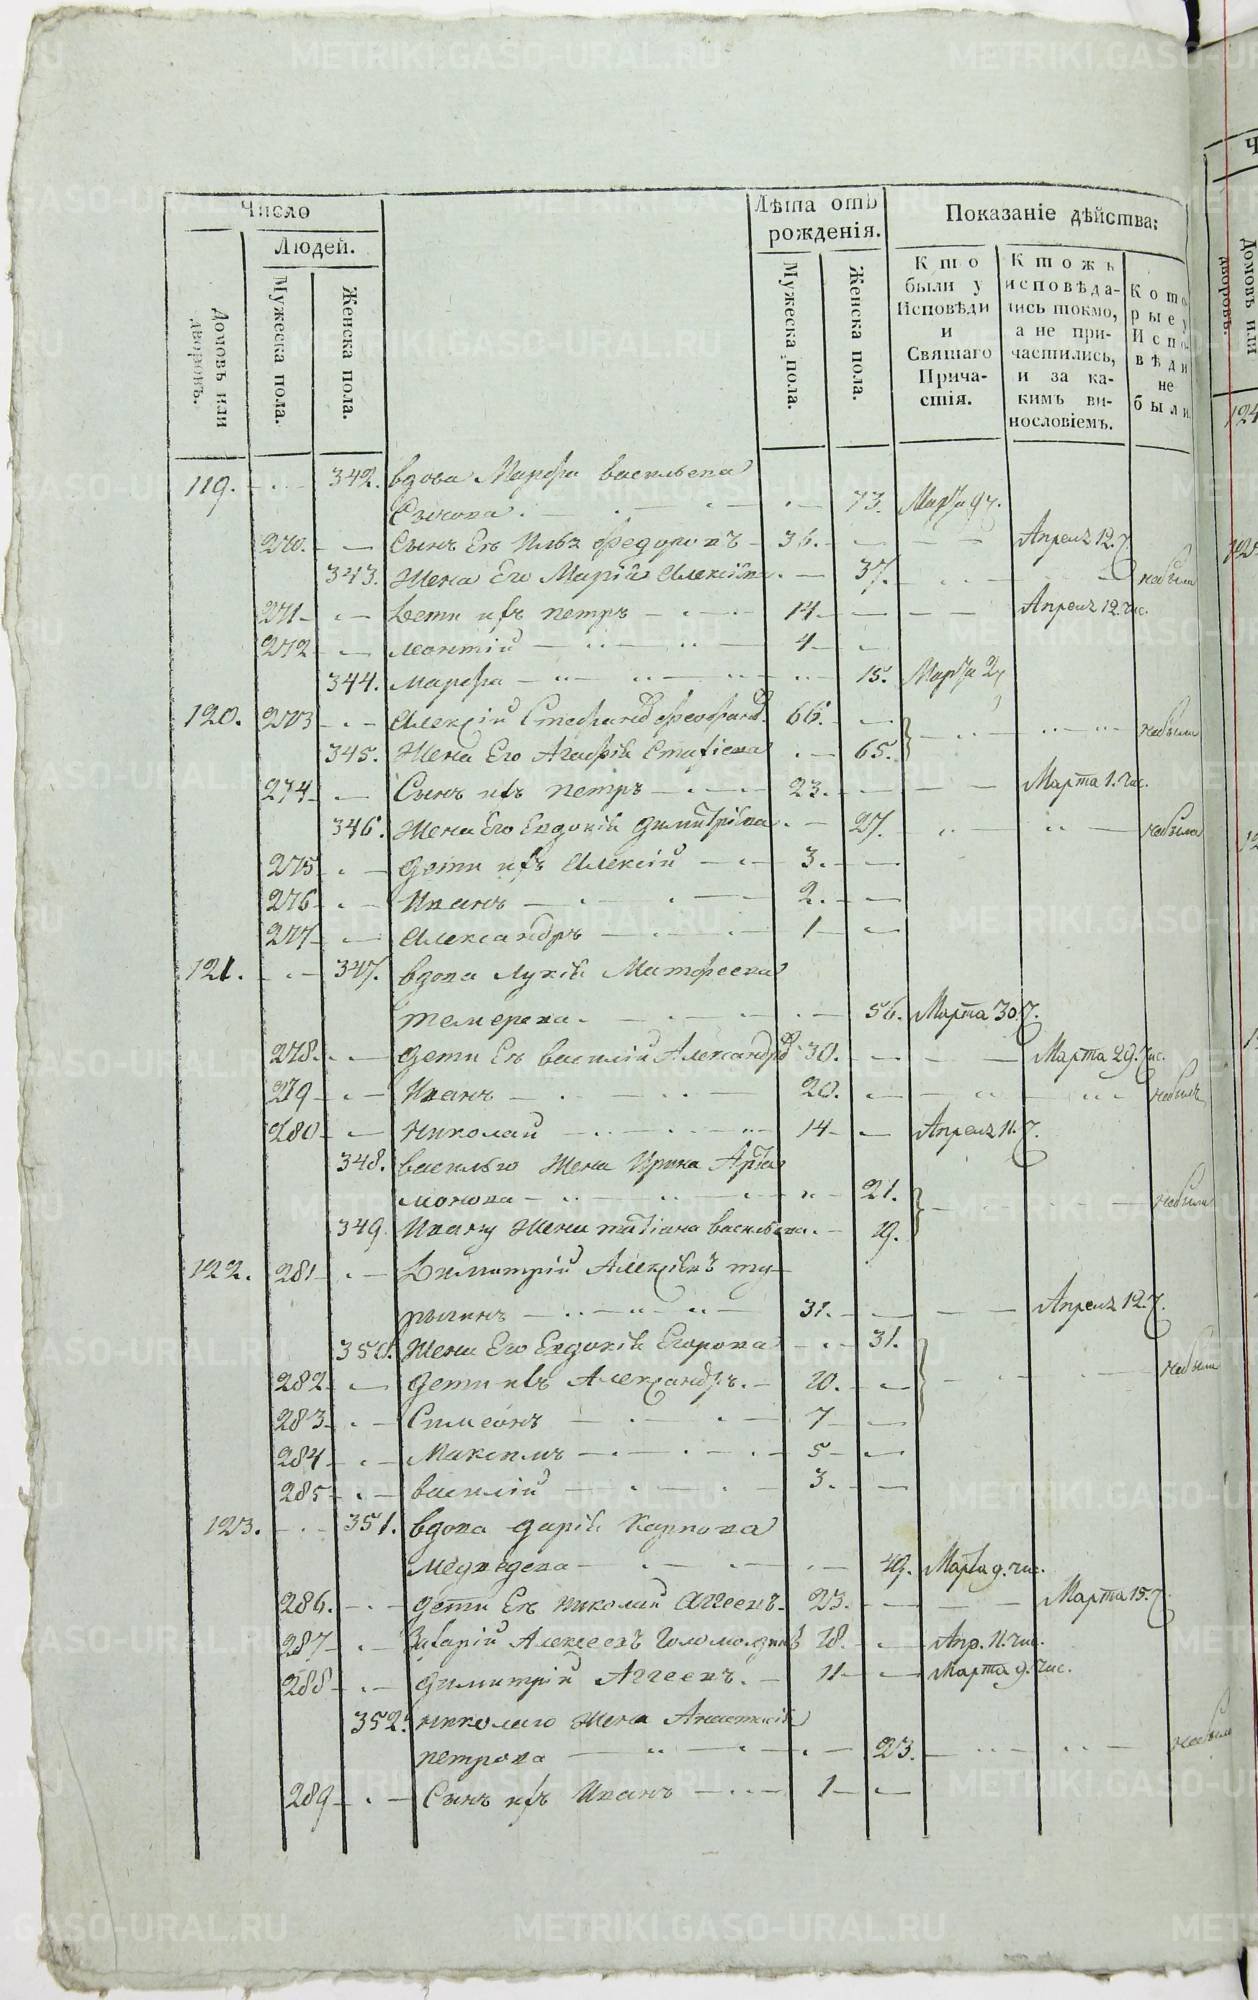 Число
Людей.
Домовъ или дворовъ.
Мужеска пола.
Женска пола.
Лѣта отъ рожденія.
Мужеска пола.
Женска пола.
Показаніе дѣйства:
Кто были у Исповѣди и Святаго Причастія.
Ктожъ исповѣдались токмо, а не причастились, и за какимъ винословіемъ.
Которые у Исповѣди не были
119. 342. вдова Марфа васильева
73. Марта 9 ч.
270. Сынъ Ея Илья федоровъ 36. Апреля 12. ч
343. Жена Его Марія Алексіева 37. небыла
271 Дети ихъ петръ 14 Апреля 12. чис.
272 леонтій 4
344. марфа 15. Марта 2
120. 273 Алексій 66.
345. Жена Его Агафія 65. небыли
274 Сынъ ихъ петръ 23. Марта 1. чис.
346. Жена Его Евдокія димитріева 27. небыла
275 дети ихъ Алексій 3.
276 Иванъ 2.
277 Александръ 1
121. 347. вдова Лукія Матфеева
56. Марта 30 ч.
278. дети Ея василій Александровъ 30. Марта 29. чис.
279 Иванъ 20. небылъ
280 николай 14 Апреля 11. ч.
348. васильго жена Ирина Арта
монова 21.
349 Ивану жена татіана васильева 19. небыли
122. 281 Димитрій Алексіевъ ту
рыгинъ 31. Апреля 12. ч.
350. Жена Его Евдокія Егорова 31.
282 дети ихъ Александръ. 10. небыли
283 Симеонъ 7
284 Максимъ 5
285 василій 3.
123. 351. вдова дарія Карпова
медведева 49. Марта 9. чис.
286. дети Ея николай Аггеевъ 23. Марта 15. ч
287 Захарій Алексеевъ 18. Апр. 11. чис.
288 димитрій Аггеевъ. 11 Марта 9. чис.
352. николаго жена Анастасія
петрова 23. небыла
289 Сынъ ихъ Иванъ 1
Домовъ или дворовъ.
124
METRIKI.GASO-URAL.RU